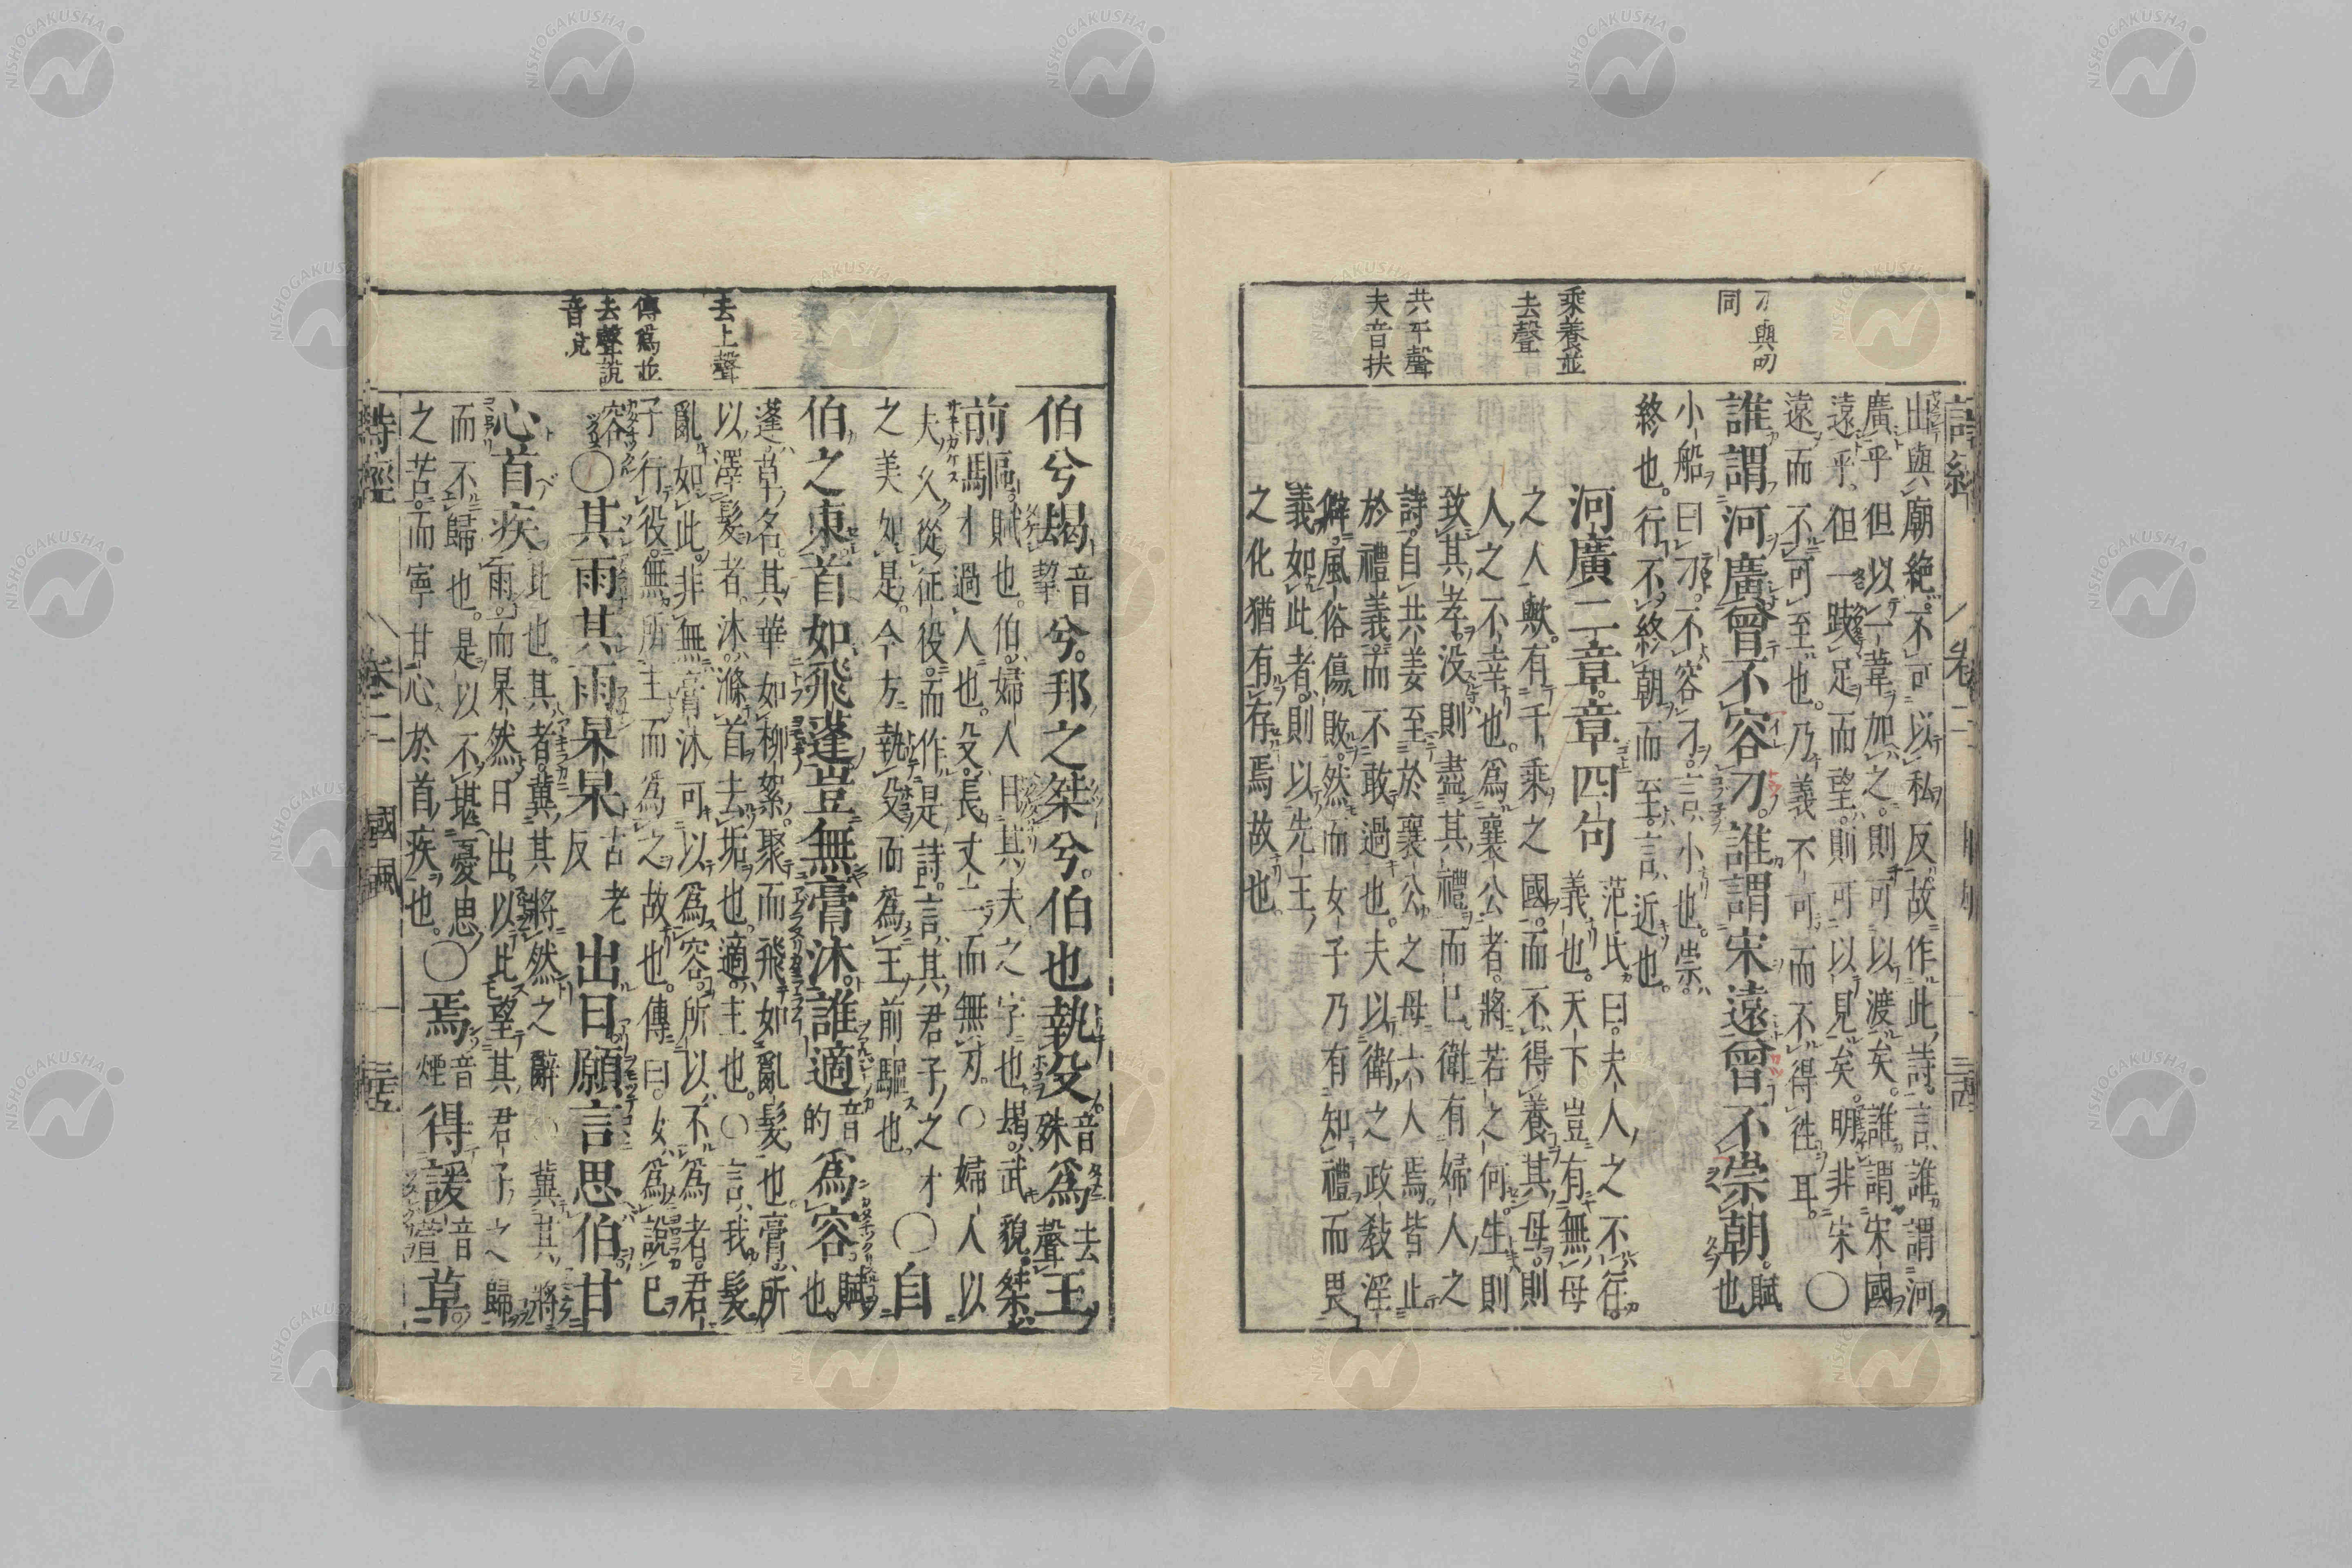 刀與叨
同
乘養並
去聲
共平聲
夫音扶
出與廟絶不可以私反故作此詩言誰謂河
廣乎但以一葦加之則可以渡矣誰謂宋國
遠乎但一跂足而望則可以見矣明非宋○
遠而不可至也乃義不可而不得往耳
誰謂河廣曾不容刀誰謂宋遠曾不崇朝賦也
小船曰刀不容刀言小也崇
終也行不終朝而至言近也
河廣二章章四句
范氏曰夫人之不往
義也天下豈有無母
之人歟有千乘之國而不得養其母則
人之不幸也爲襄公者將若之何生則
致其孝沒則盡其禮而已衛有婦人之
詩自共姜至於襄公之母六人焉皆止
於禮義而不敢過也夫以衛之政教淫
僻風俗傷敗然而女子乃有知禮而畏
義如此者則以先王
之化猶有存焉故也
去上聲
傳爲並
去聲說
音兌
伯兮朅音挈兮邦之桀兮伯也執殳音殊爲去聲王
前驅賦也伯婦人目其夫之字也朅武貌桀
才過人也殳長丈二而無刃○婦人以
夫久從征役而作是詩言其君子之才
之美如是今方執殳而爲王前驅也
○自
伯之東首如飛蓬豈無膏沐誰適音的爲容賦也
蓬草名其華如柳絮聚而飛如亂髮也膏所
以澤髮者沐滌首去垢也適主也○言我髮
亂如此非無膏沐可以爲容所以不爲者君
子行役無所主而爲之故也傳曰女爲說已
容○其雨其雨杲杲古老反出日願言思伯甘
心首疾比也其者冀其將然之辭○冀其將
雨而杲然日出以比望其君子之歸
而不歸也是以不堪憂思
之苦而寧甘心於首疾也
○焉音煙得諼音萱草
詩經 卷二 國風 三五